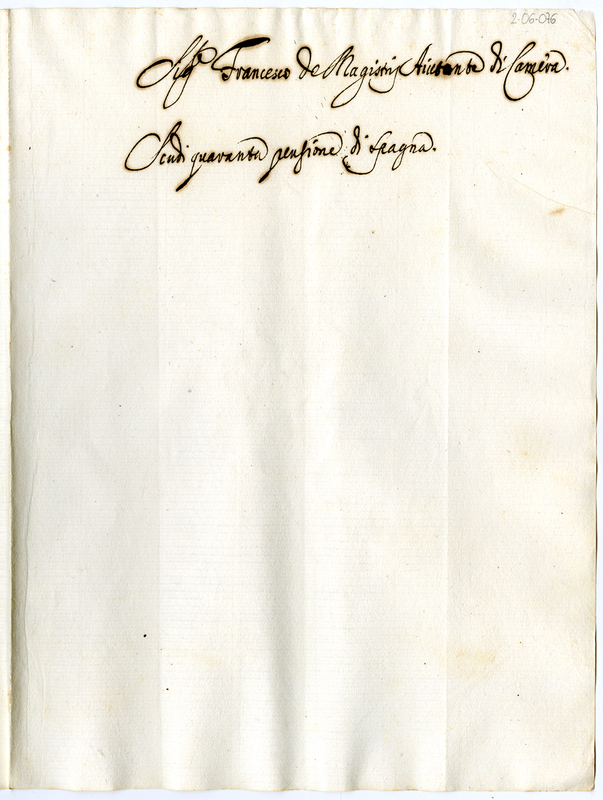 2-06-076
Sig.r Francesco de Magistris Aiutante di Camera.
Scudi quaranta pensione di Spagna.